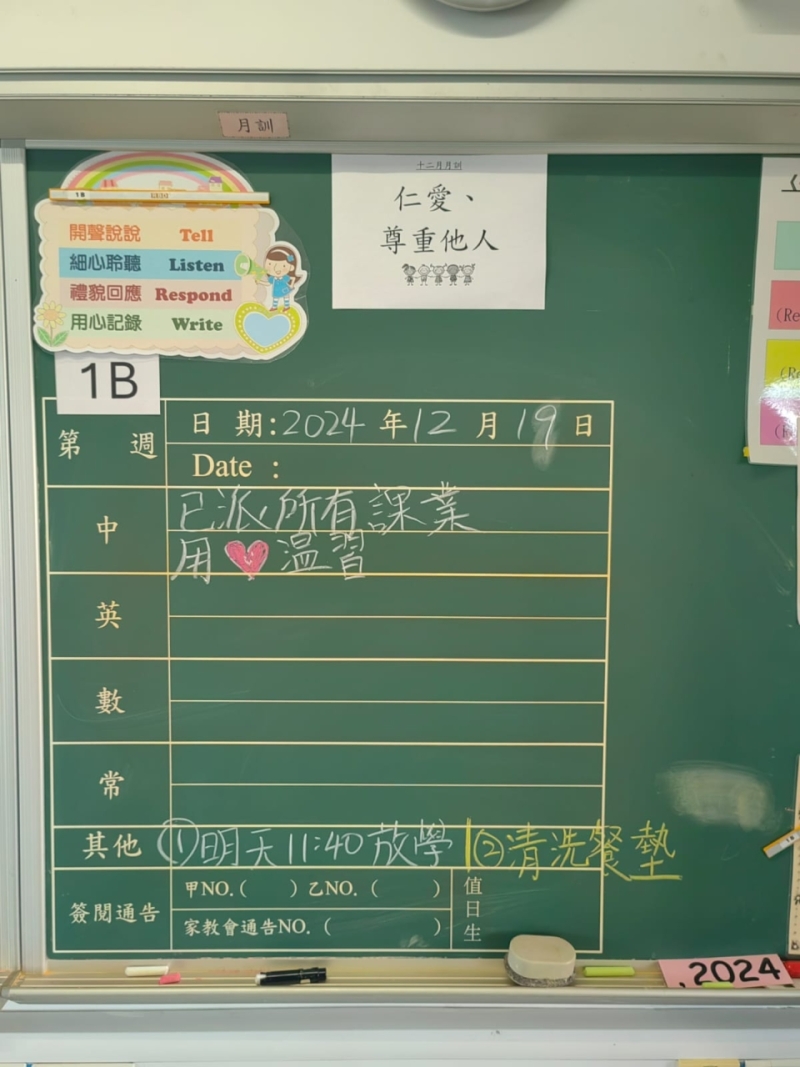 月訓
十二月月訓
仁愛、
尊重他人
開聲說說 Tell
細心聆聽 Listen
禮貌回應 Respond
用心記錄 Write
1B
第 週
日 期:2024 年12 月19 日
Date :
中
已派所有課業
用❤温習
英
數
常
其他 ①明天11:40放學 ②清洗餐墊
簽閱通告
甲NO.( ) 乙NO. ( )
家教會通告NO. ( )
值日生
.2024